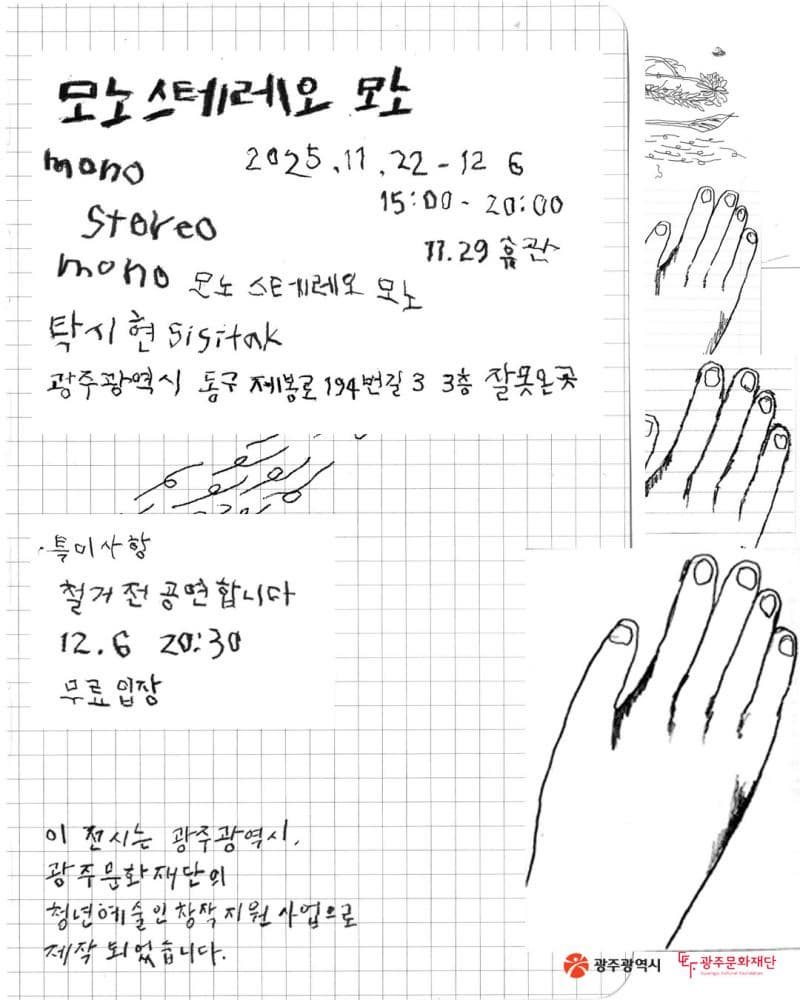 모노 스테레오 모노
mono
stereo
mono 모노 스테레오 모노
2025.11.22 - 12 6
15:00 - 20:00
11.29 휴관
탁시현 Sisitak
광주광역시 동구 제봉로 194번길 3 3층 잘못온곳
· 특이사항
철거 전 공연합니다
12.6 20:30
무료 입장
이 전시는 광주광역시,
광주문화재단의
청년예술인창작지원 사업으로
제작 되었습니다.
광주광역시
광주문화재단
Gwangju Cultural Foundation